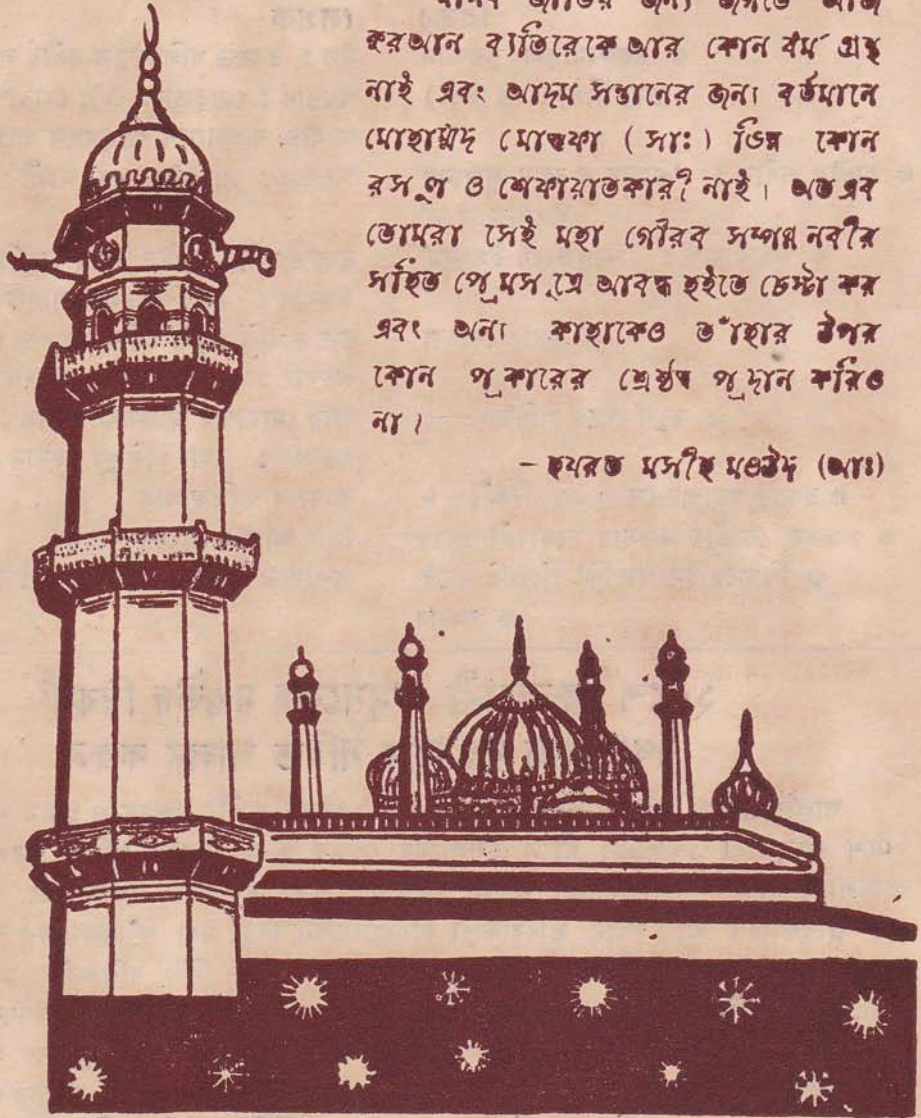 মানব জাতির জন্য জগতে আজ
কুরআন ব্যতিরেকে আর কোন ধর্ম গ্রন্থ
নাই এবং আদম সন্তানের জন্য বর্তমানে
মোহাম্মদ মোস্তফা (সাঃ) ভিন্ন কোন
রসূল ও শেফায়াতকারী নাই। অতএব
তোমরা সেই মহা গৌরব সম্পন্ন নবীর
সহিত প্রেমসূত্রে আবদ্ধ হইতে চেষ্টা কর
এবং অন্য কাহাকেও তাঁহার উপর
কোন প্রকারের শ্রেষ্ঠত্ব প্রদান করিও
না।
– হযরত মসীহ মওউদ (আঃ)